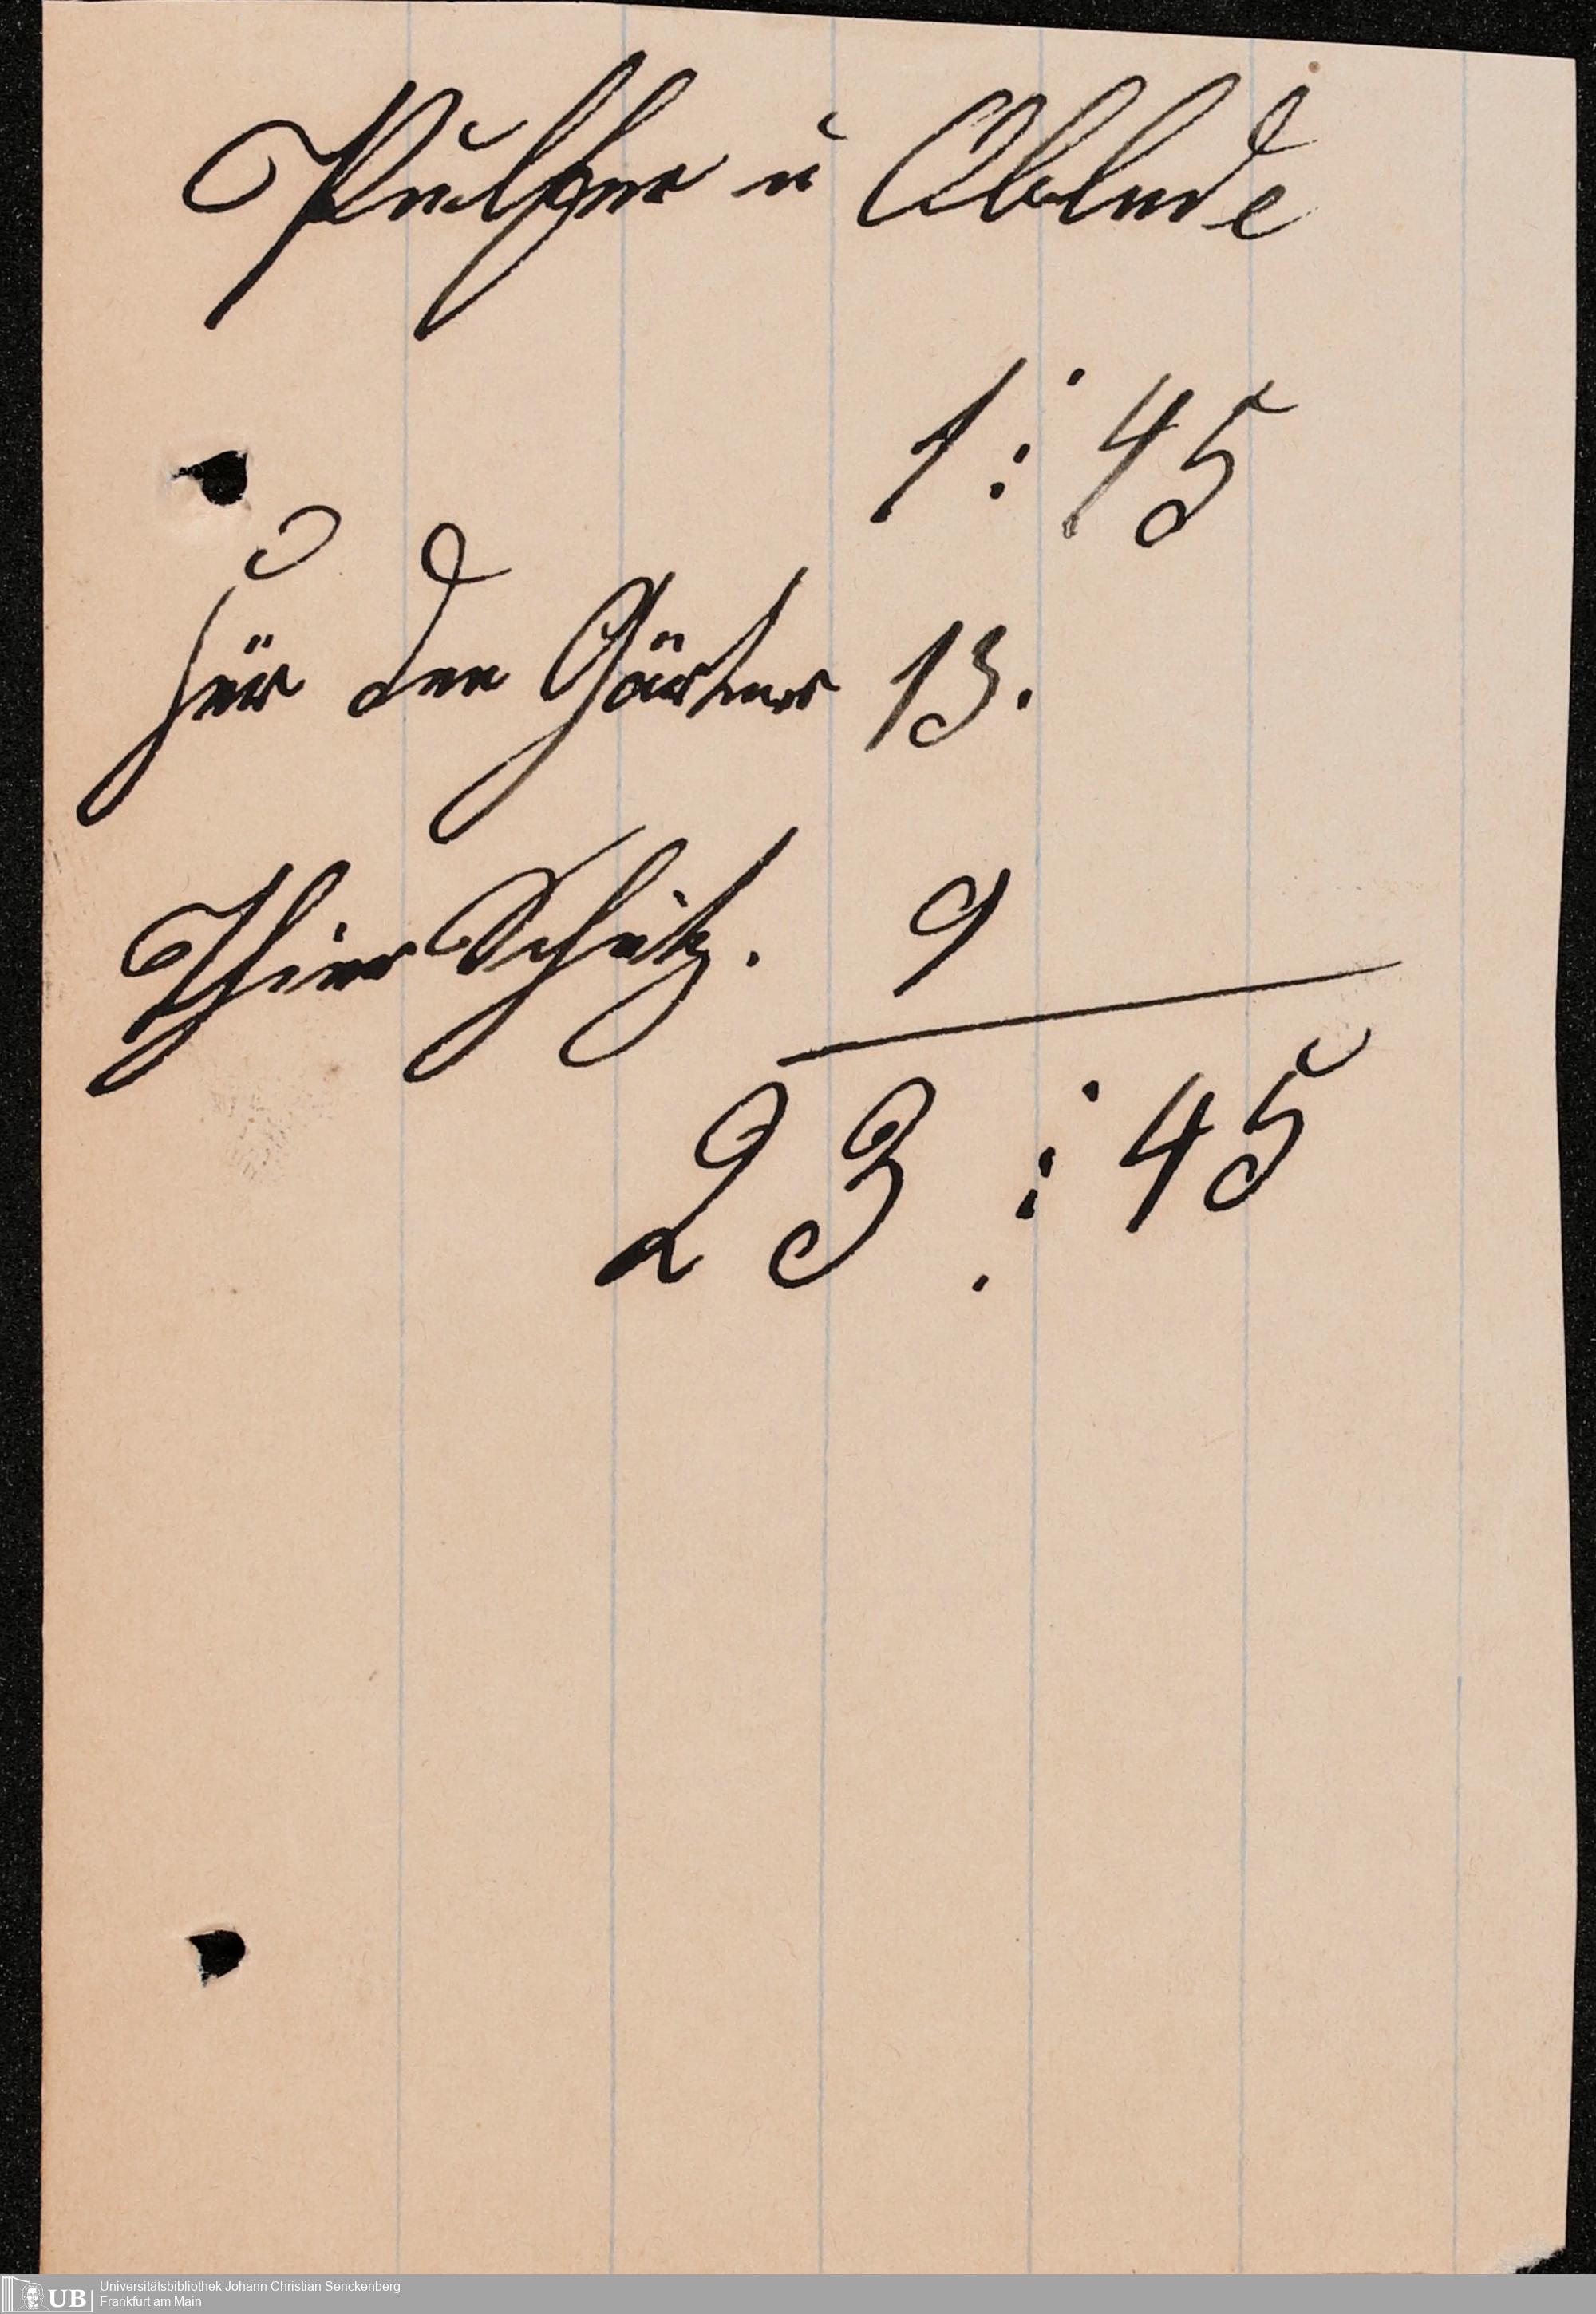 Pulfer u Oblade
1 : 45
Für den Gärtner 13.
Thier Schutz. 9
23 : 45
UB Universitätsbibliothek Johann Christian Senckenberg
Frankfurt am Main